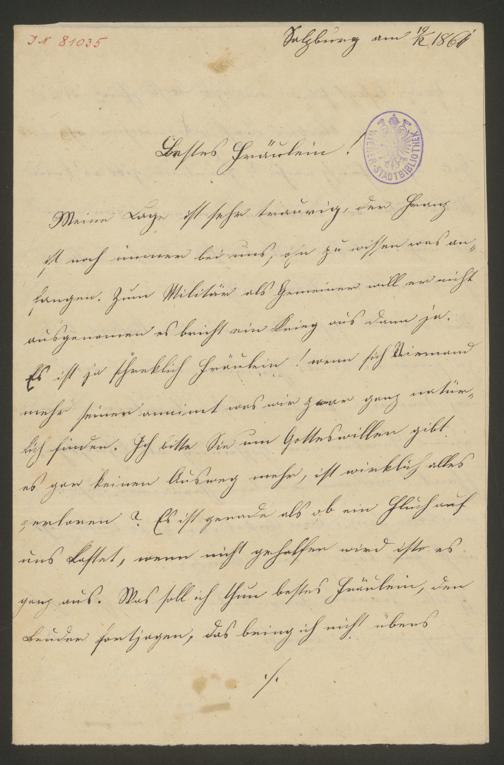 IN 81035
Salzburg am 19/12 186
Bestes Fräulein!
WIENER STADTBIBLIOTHEK
Meine Lage ist sehr traurig, der Franz
ist noch immer bei uns, ohn zu wissen was an-
fangen. Zum Militär als Gemeiner will er nicht
ausgenomen es bricht ein Krieg aus dann ja.
Es ist ja schreklich Fräulein! wenn sich Niemand
mehr seiner annimt was wir zwar ganz natür-
lich finden. Ich bitte Sie um Gotteswillen gibt
es gar keinen Ausweg mehr, ist wirklich alles
verloren? Es ist gerade als ob ein Fluch auf
uns lastet, wenn nicht geholfen wird ists es
ganz aus. Was soll ich thun bestes Fräulein, den
Bruder fortjagen, das bring ich nicht übers
./.